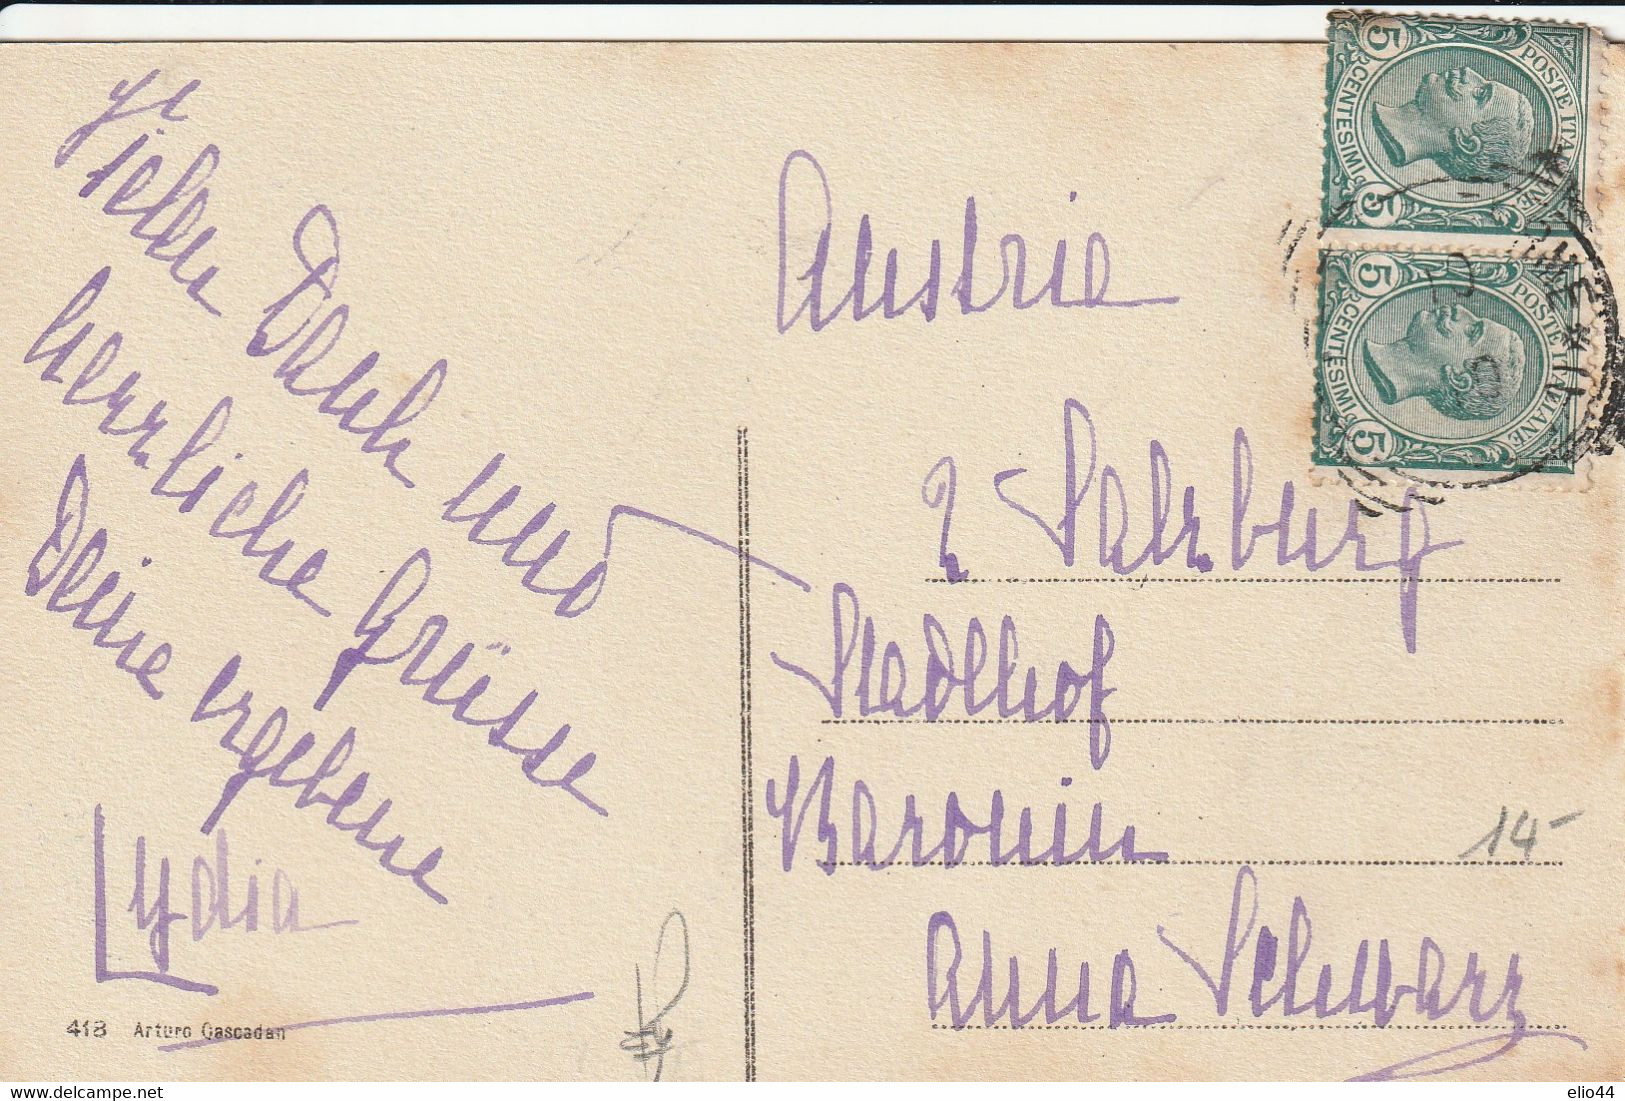 Vielen Dank und
herrliche Grüsse
Deine ergebene
Lydia
418 Arturo Gascadan
Austria
Salzburg
Stadlhof
Baronin
Anna Schwarz
14-
5 CENTESIMI 5
POSTE ITALIANE
5 CENTESIMI 5
POSTE ITALIANE
elio44